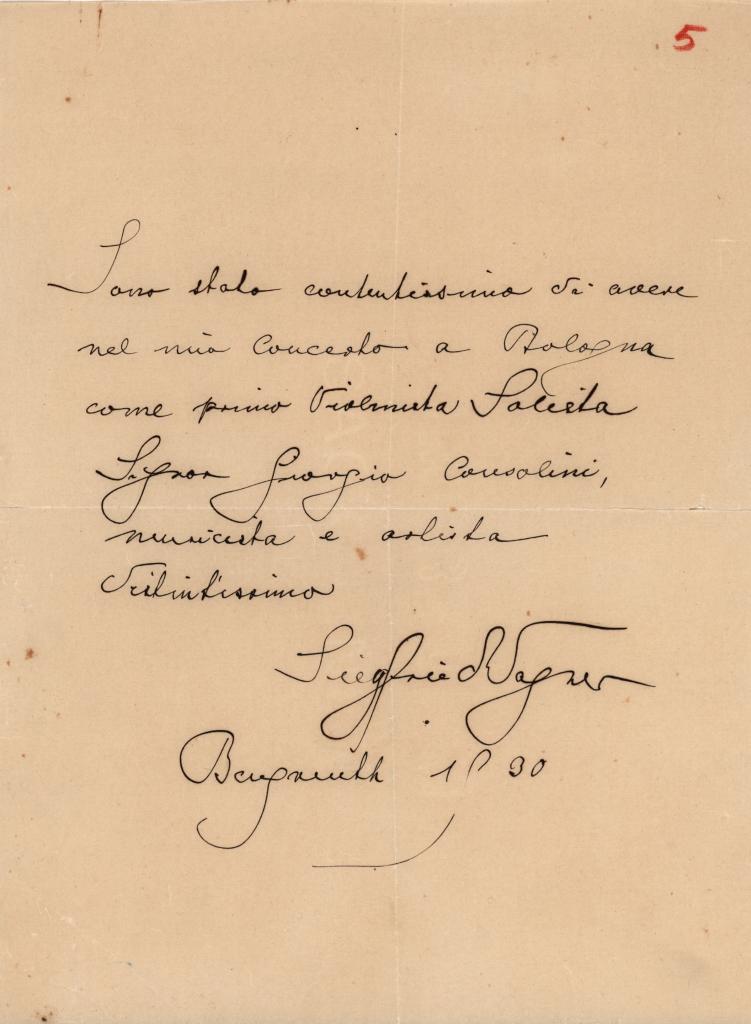 5
Sono stato contentissimo di avere
nel mio Concerto a Bologna
come primo Violinista Solista
Signor Giorgio Consolini,
musicista e artista
distintissimo
Siegfried Wagner
Bayreuth 1930